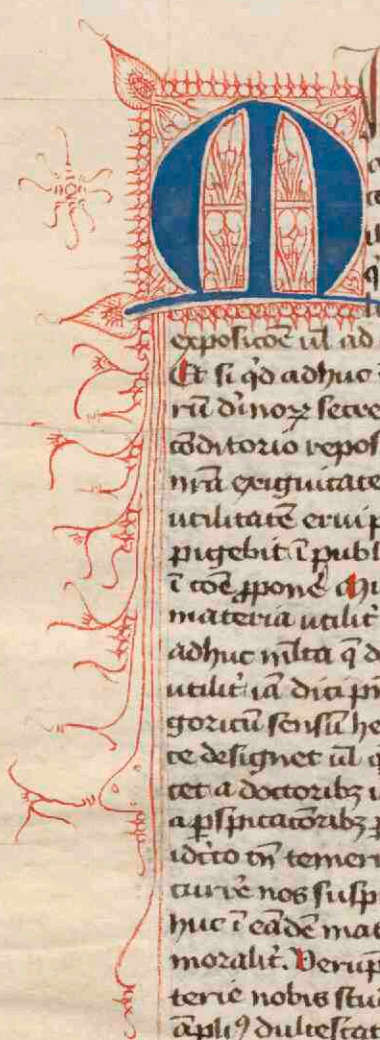 M
expositōe ul̄ ad
Et si qͥd adhuc
rū diuinoꝝ secre
cōditorio repos
nr̄a exiguitate
utilitatē erui p
pigebit ī publ
ī cōe ꝓpone
materia utilit̛
adhuc ml̄ta q̄ d
utilit̛ iā dici
goricū sensū he
te designet ul̄
cet a doctoribꝫ
a ꝑspicacioribꝫ
idcͦo tn̄ temer
huc ī eādē mat
moralit̛. Verūp
terie nobis stu
āpliꝰ dulcescat